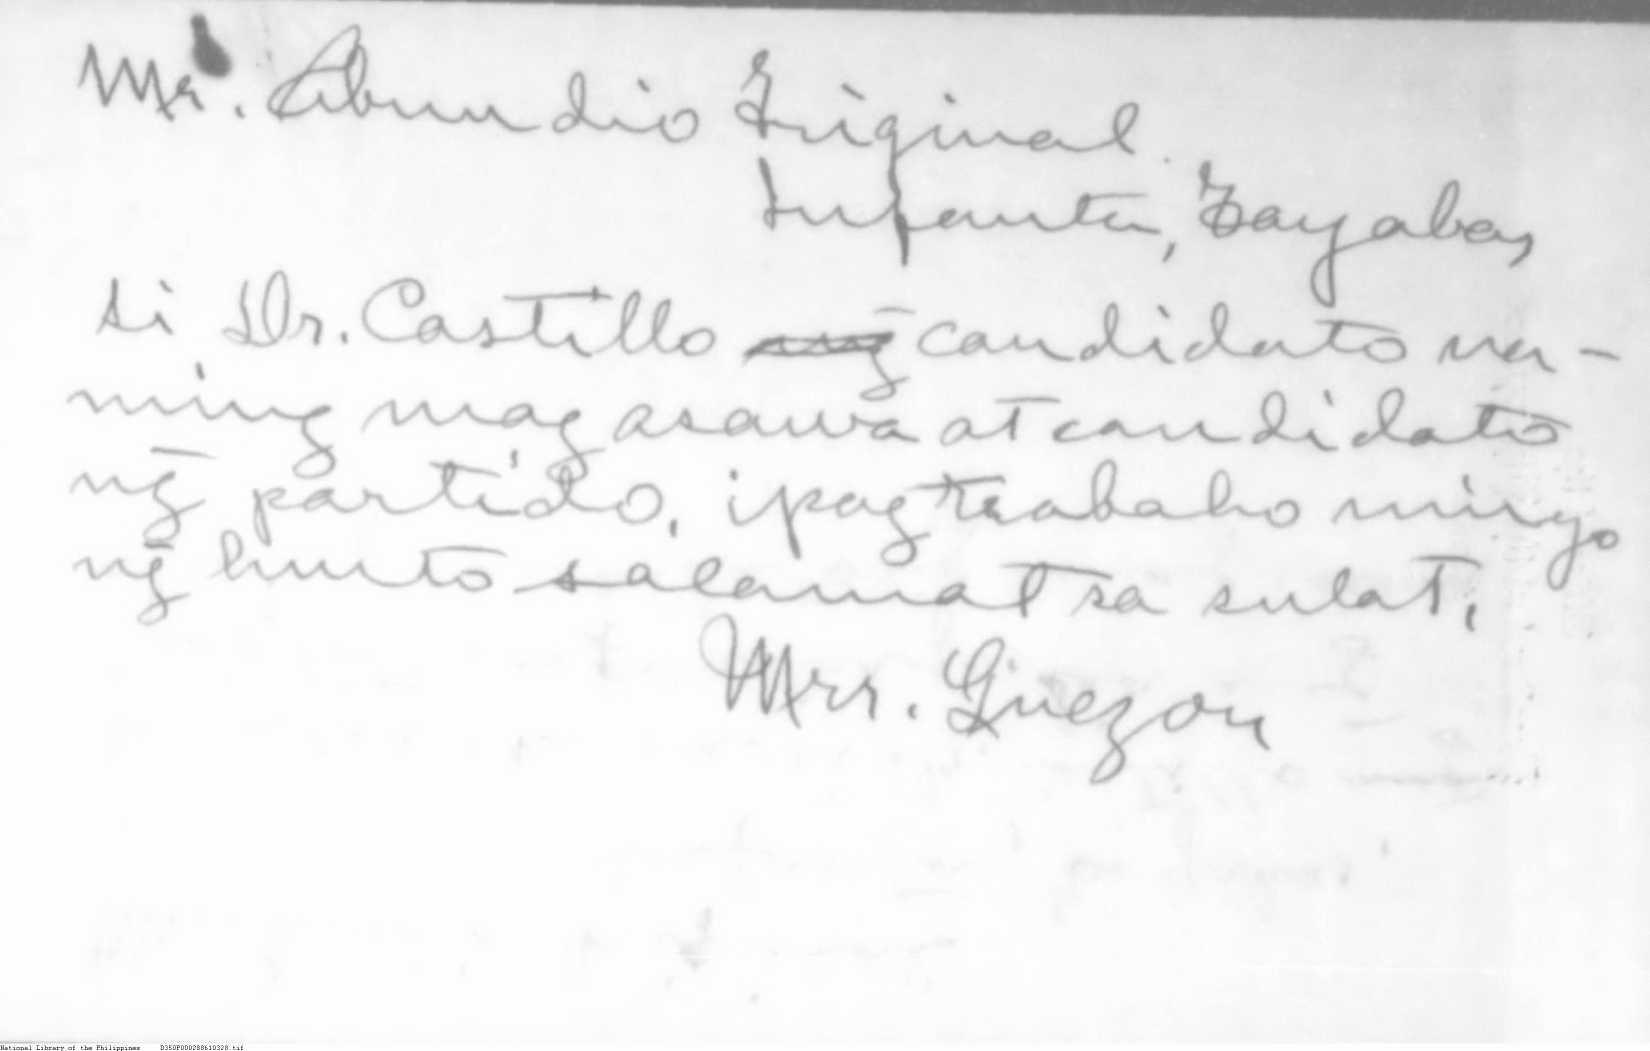 Mr. Abundio Triginal.
Infanta, Tayabas,
si Dr. Castillo candidato na-
ming mag asawa at candidato
ng̃ partido, ipagtrabaho minyo
ng̃ husto salamat sa sulat,
Mrs. Quezon
National Library of the Philippines D350P000288610328.tif